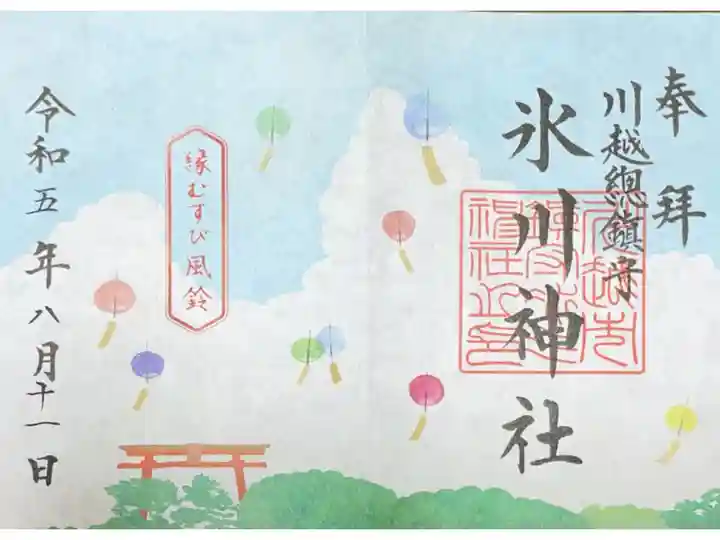 奉拝
川越總鎮守
氷川神社
縁むすび風鈴
令和五年八月十一日